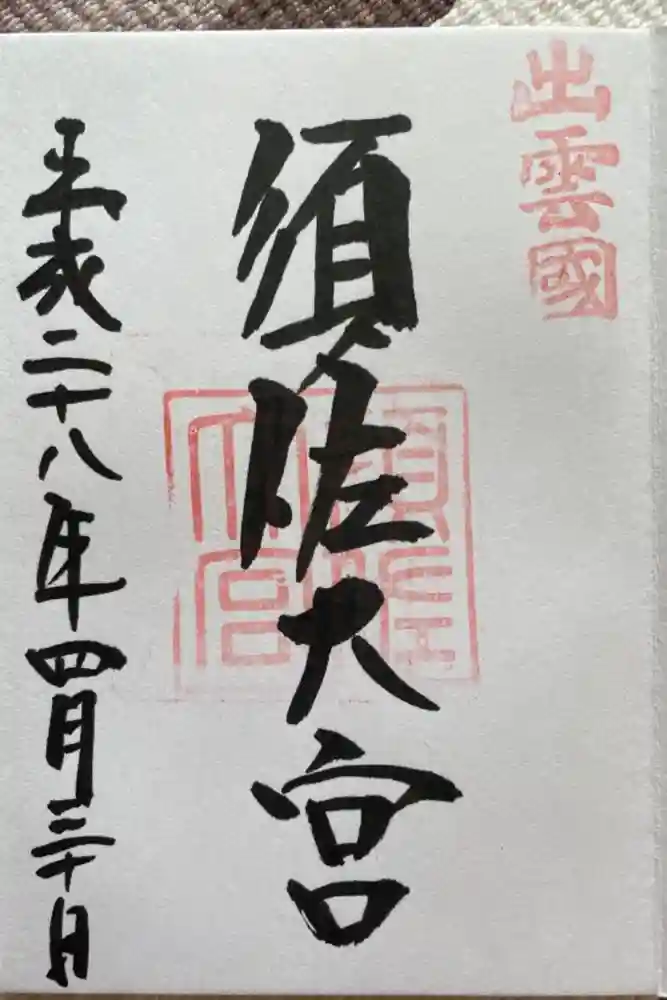 出雲國
須佐大宮
須佐大宮
平成二十八年四月三十日